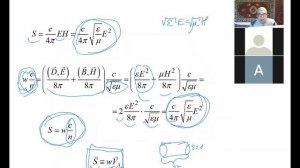 S = \frac{c}{4π} EH = \frac{c}{4π} \sqrt{\frac{ε}{μ}} E^2
√ε E = √μ H
w \frac{c}{n} = \left( \frac{(\vec{D}, \vec{E})}{8π} + \frac{(\vec{B}, \vec{H})}{8π} \right) \frac{c}{\sqrt{εμ}} = \left( \frac{εE^2}{8π} + \frac{μH^2}{8π} \right) \frac{c}{\sqrt{εμ}} =
= 2 \frac{εE^2}{8π} \frac{c}{\sqrt{εμ}} = \frac{c}{4π} \sqrt{\frac{ε}{μ}} E^2
S = w \frac{c}{n}
A